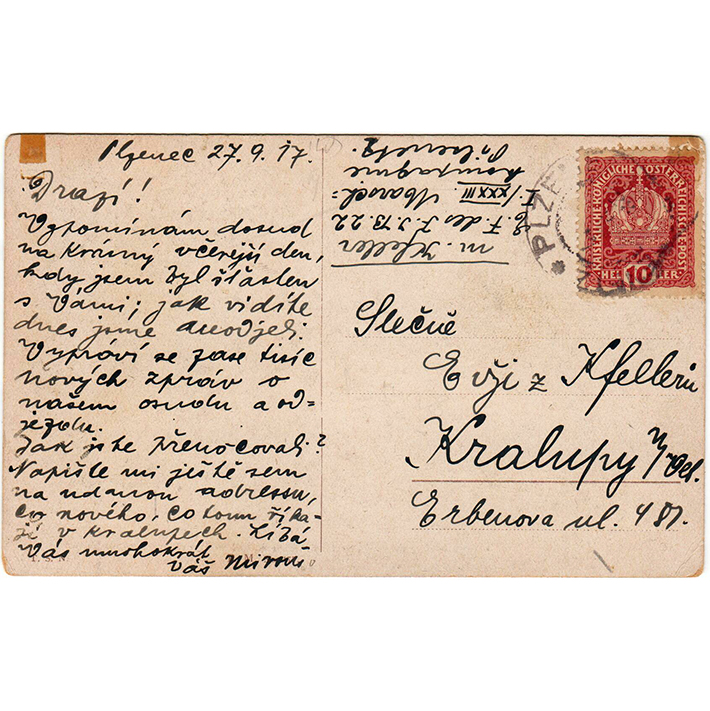 Plzenec 27.9.17.
Drazí!
Vzpomínám dosud
na krásný včerejší den,
kdy jsem byl šťasten
s Vámi; jak vidíte
dnes jsme neodjeli.
Vypráví se zase tisíc
nových zpráv o
našem osudu a od=
jezdu.
Jak jste přenocovali?
Napište mi ještě sem
na udanou adressu,
co nového, co tomu říka-
jí v Kralupech. Líbá
Vás mnohokrát
Váš
M. Kfeller
E. F. des J. J. R. 22
I./XXXIII Marsch=
kompagnie
Pilsenetz.
KAISERLICHE KÖNIGLICHE ÖSTERREICHISCHE POST
HELLER 10 HELLER
PLZE
Slečně
Evži z Kfellerů
Kralupy n/Vlt.
Erbenova ul. 481.